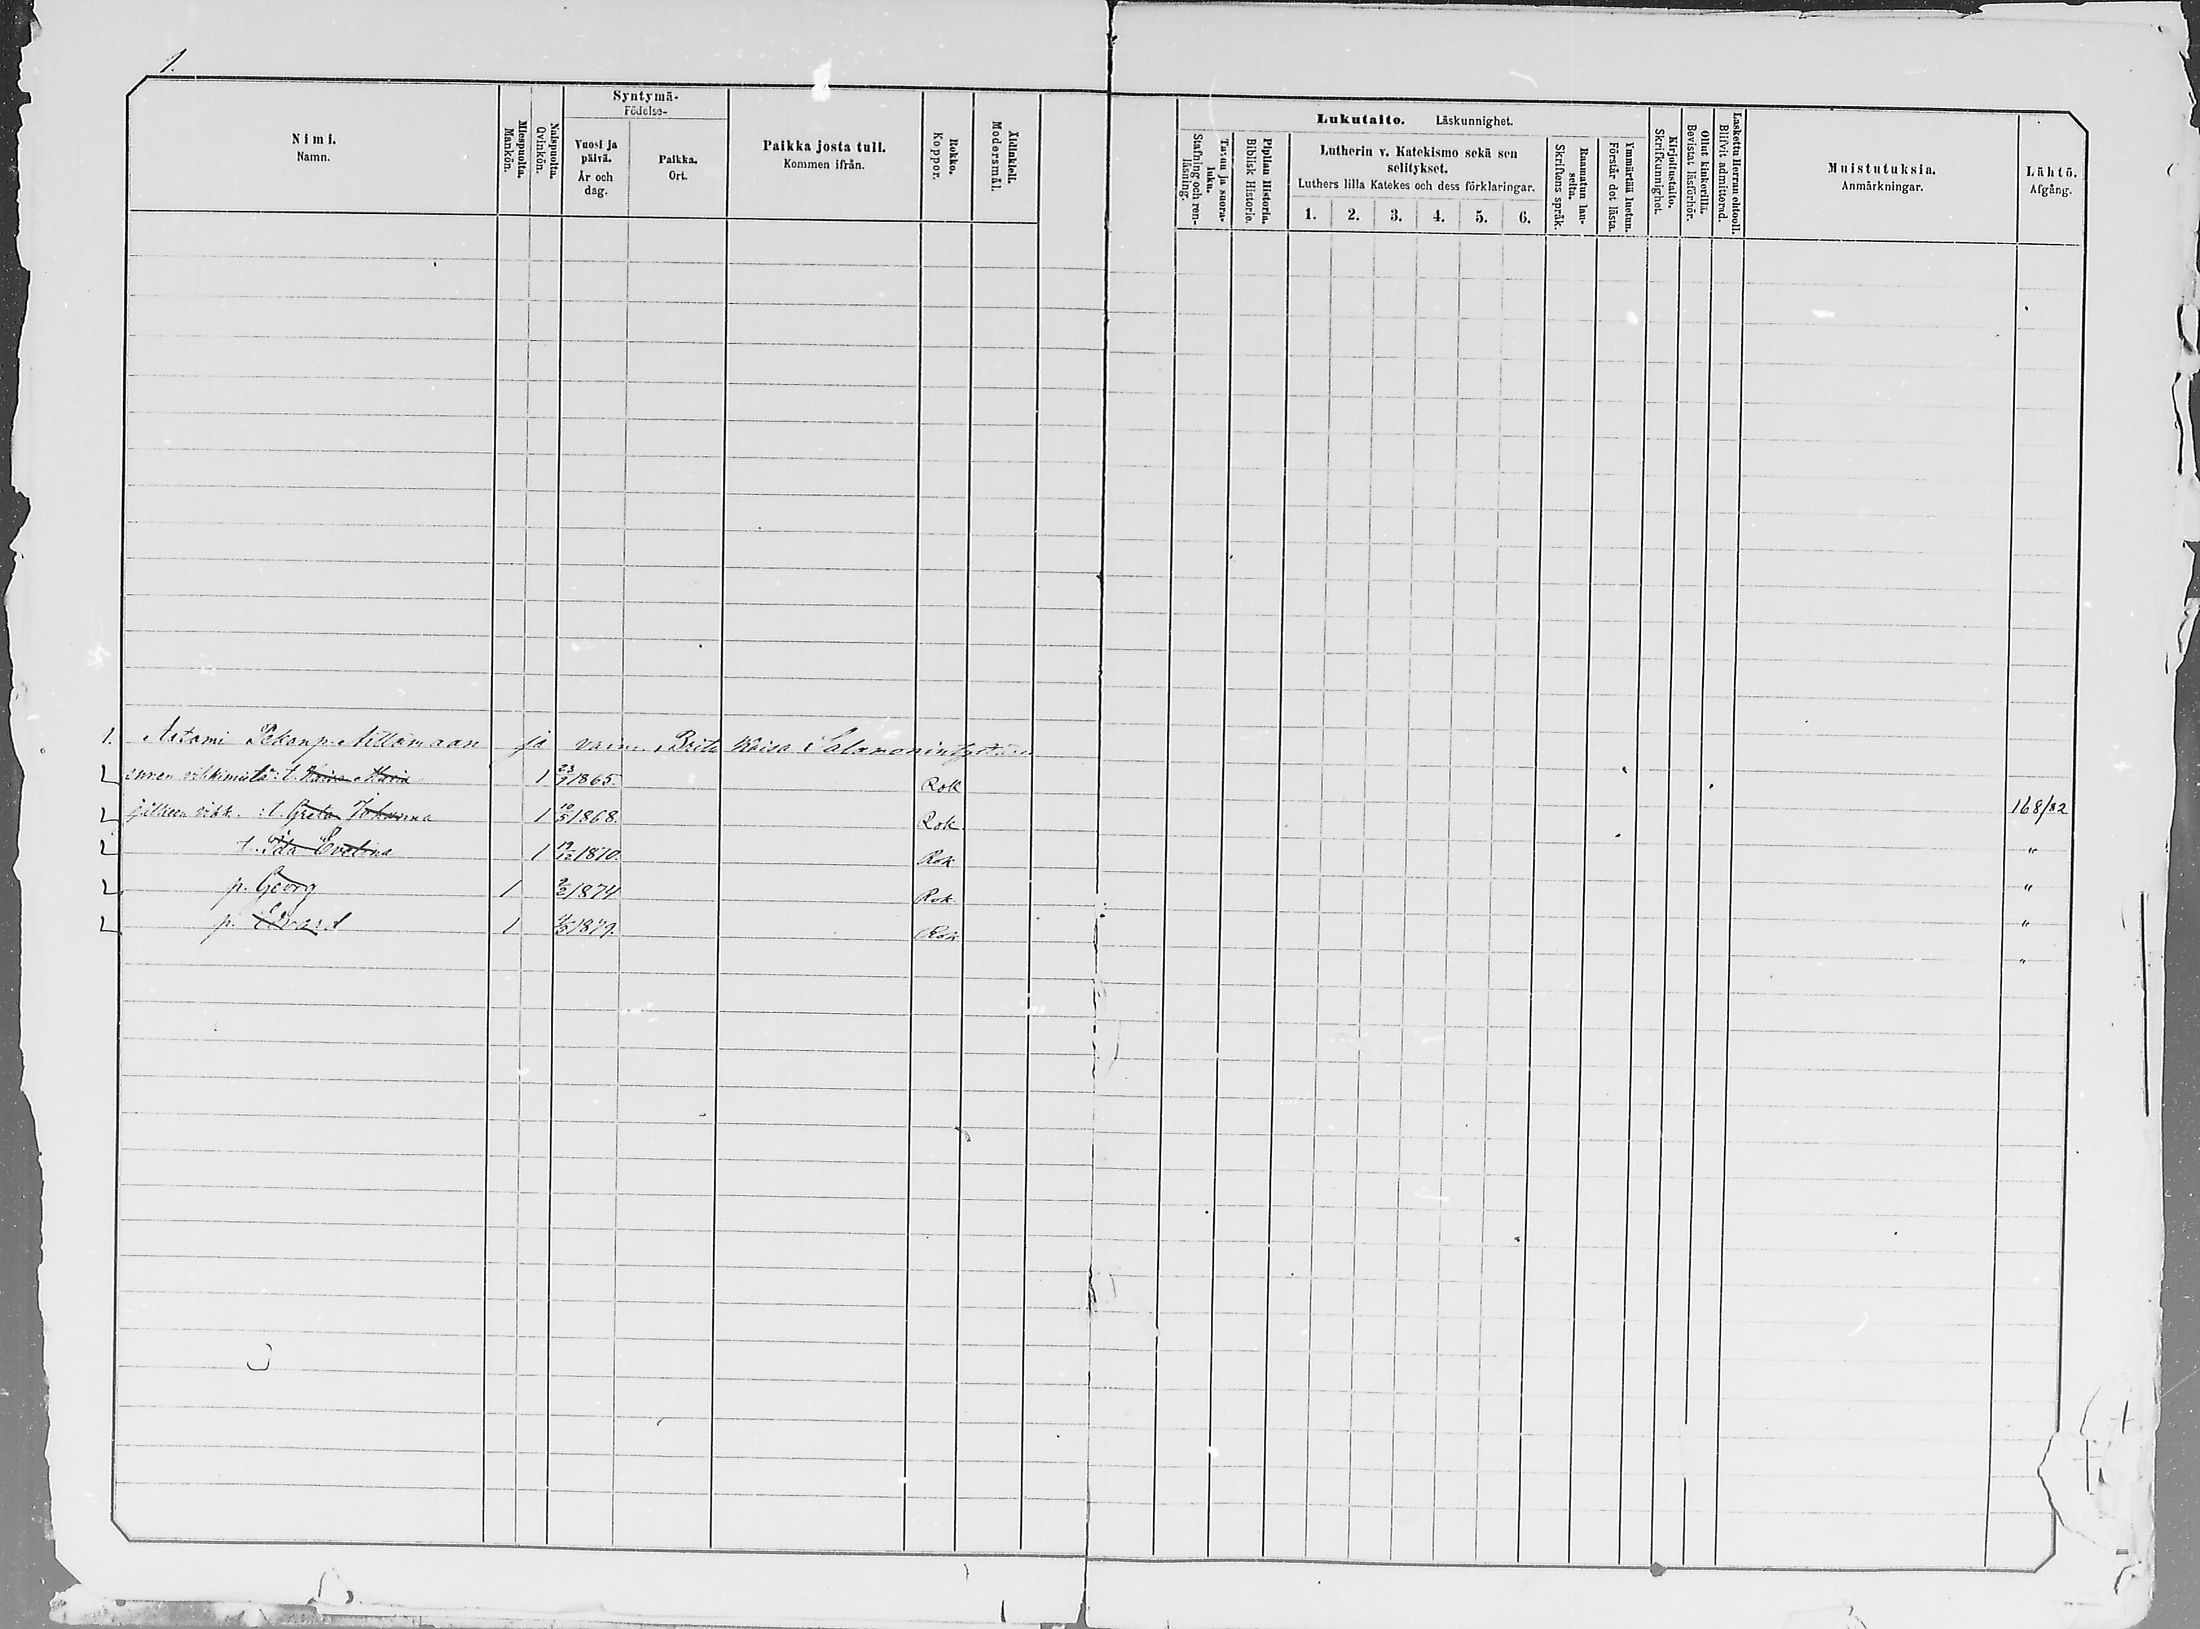 1.
Nimi. Namn.
Miespuolia. Mankön.
Naispuolia. Qvinkön.
Syntymä- Födelse-
Vuosi ja päivä. År och dag.
Paikka. Ort.
Paikka josta tuli. Kommen ifrån.
Rokko. Koppor.
Äidinkieli. Modersmål.
Lukutaito. Läskunnighet.
Tavuu ja suora- luku. Stafning och ren- läsning.
Piplian Historia. Biblisk Historie.
Lutherin v. Katekismo sekä sen selitykset.
Luthers lilla Katekes och dess förklaringar.
1. 2. 3. 4. 5. 6.
Raamatun lau- seita. Skriftens språk.
Ymmärtää luetun. Förstår det lästa.
Kirjoitustaito. Skrifkunnighet.
Ollut kinkerillä. Bevistat läsförhör.
Laskettu Herran ehtooll. Blifvit admitterad.
Muistutuksia. Anmärkningar.
Lähtö. Afgång.
1. Aatami Pekanp. ja vaim. Brita Kaisa Salamonintytär
ennen vihkimistä: t. Maria 1 23/9 1865. Rok
jälkeen vihk. : t. Greta Johanna 1 10/5 1868. Rok 168/82
t. Ida Evelina 1 19/12 1870. Rok "
p. Georg 1 1874 Rok "
p. Edvard 1 1879. Rok "
"